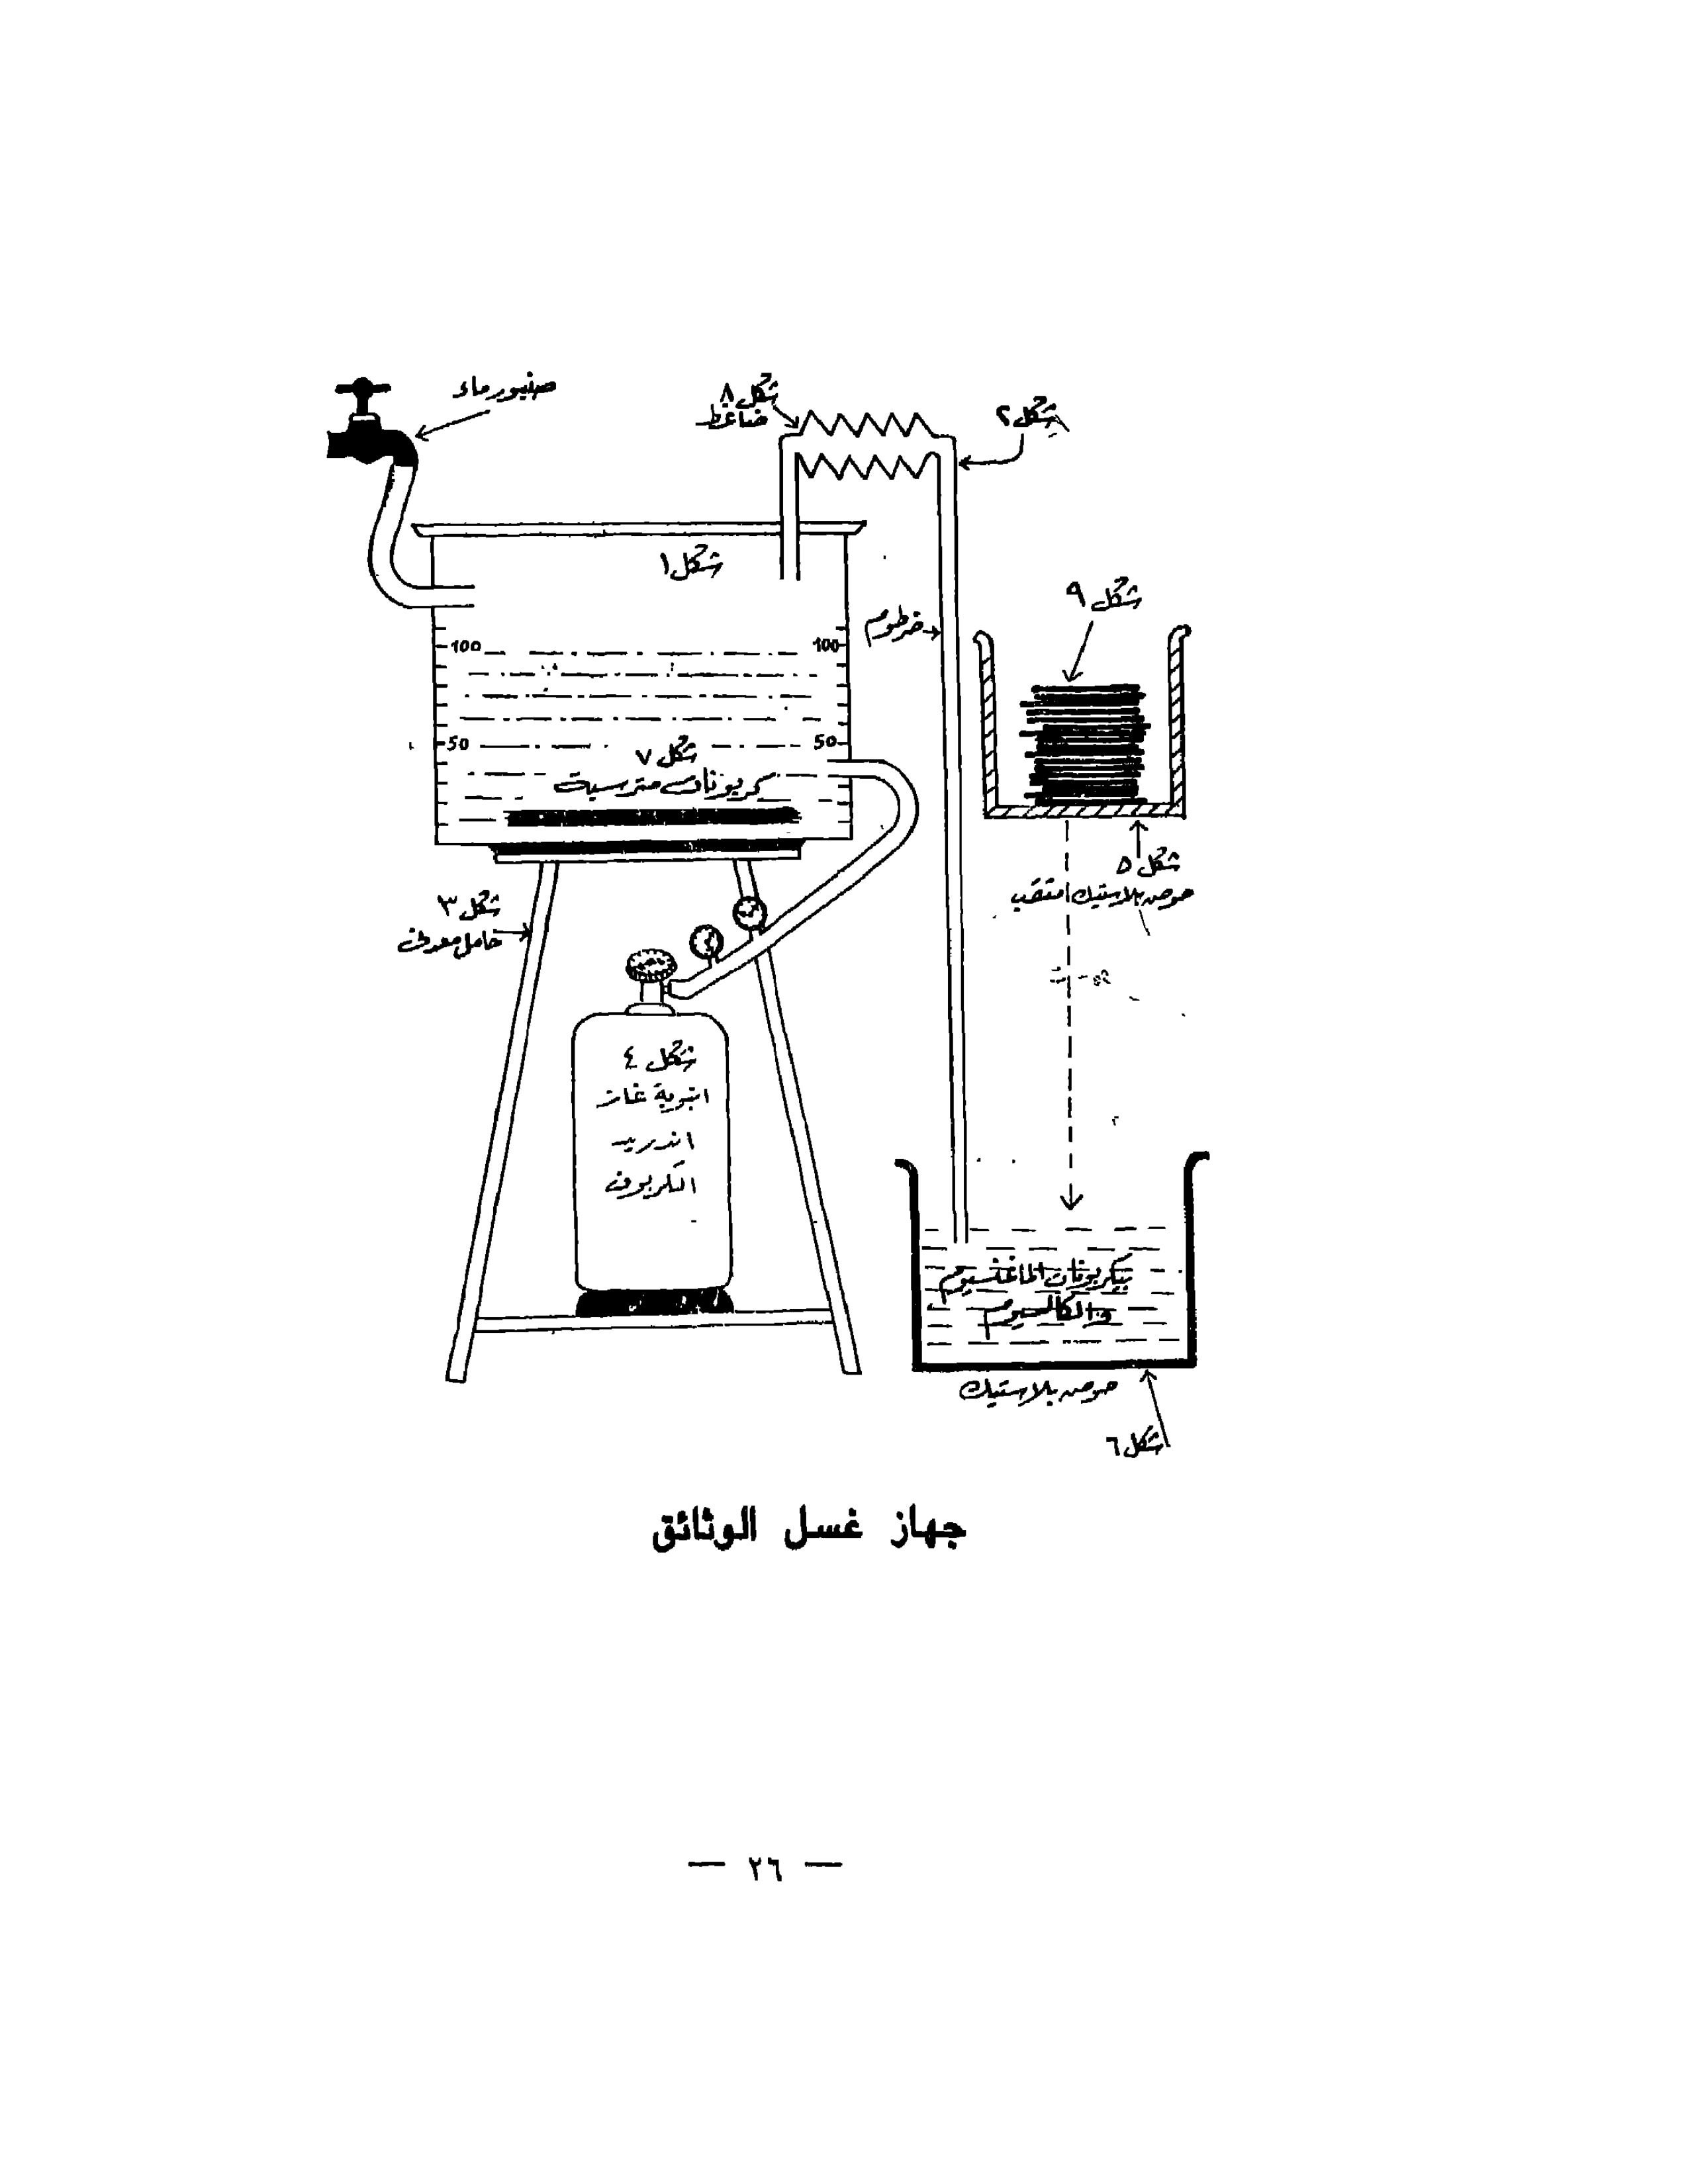 صنبور ماء
شكل ٨
ضاغط
شكل ٢
شكل ١
خرطوم
شكل ٩
100
100
50
50
شكل ٧
كربونات مترسبة
شكل ٥
حوض بلاستيك مثقب
شكل ٣
حامل معدنى
شكل ٤
انبوبة غاز
اندريد
الكربون
بيكربونات الماغنسيوم
والكالسيوم
حوض بلاستيك
شكل ٦
جهاز غسل الوثائق
— ٢٦ —